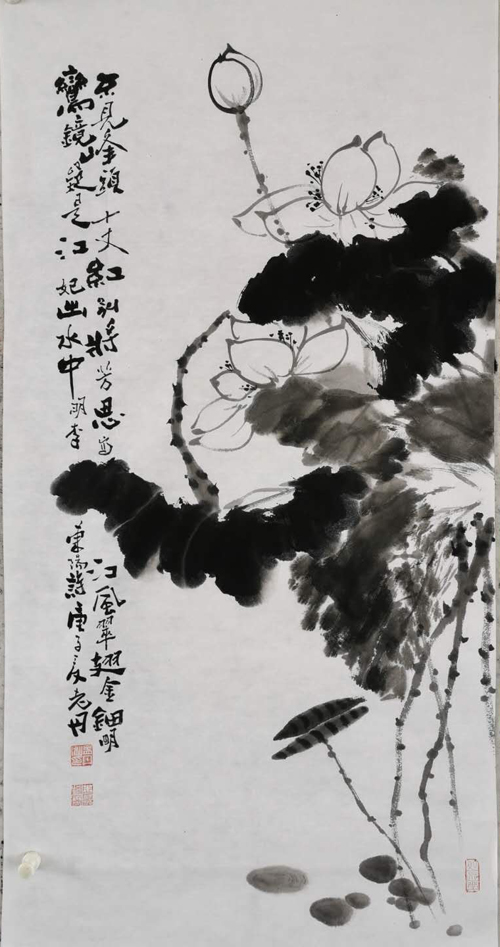 不見峯頭十丈紅別將芳思寫江風翠翹金鈿明
鸞鏡疑是江妃出水中明李東陽詩庚子夏老丹